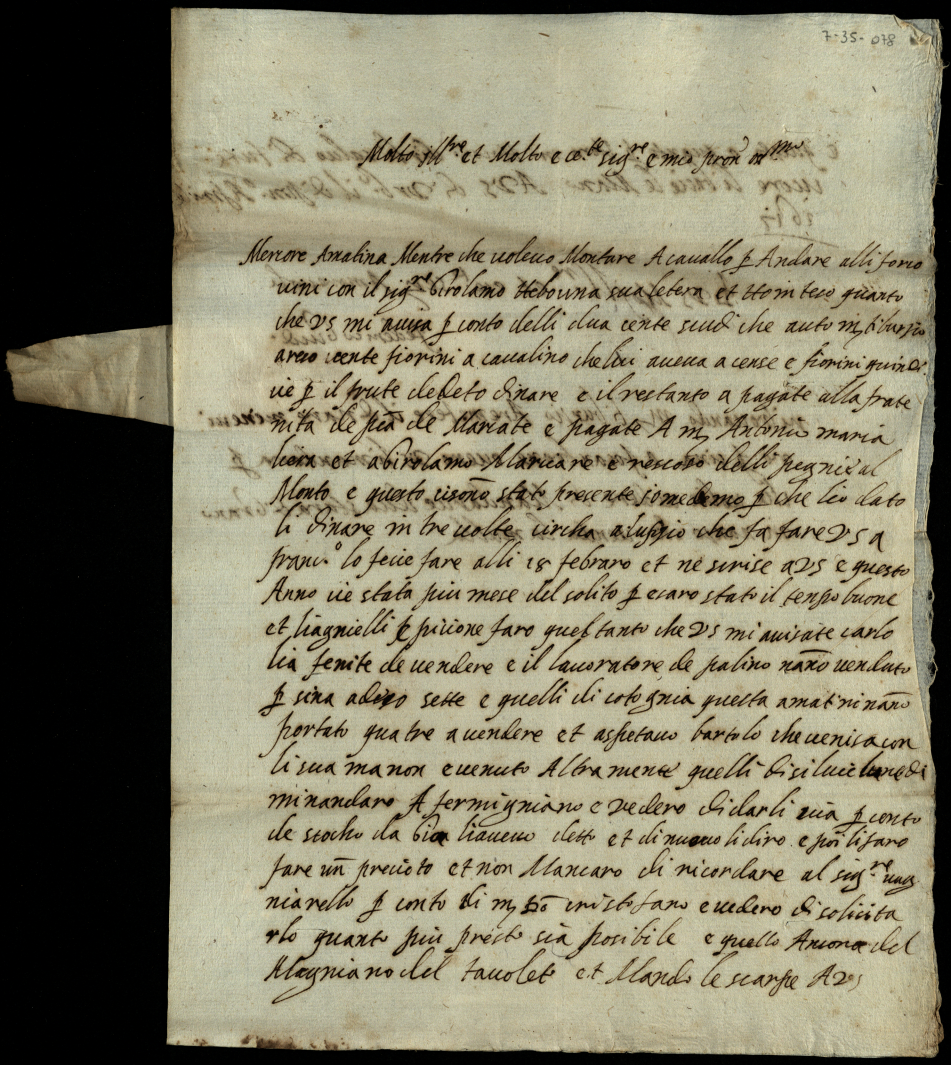 7-35-078
Molto Ill.re et Molto ecc.te sig.re e mio pron
Mercore Amatina Mentre che volevo Montare A cavallo p Andare alli
vini con il sig.re Girolamo sua letera et quanto
che VS mi avisa p conto delli dua cente scudi che auto
cente fiorini a cavalino che lui aveva a cense e fiorini quindi
cie p il frute de deto dinare e il restanto a pagate alla frate
nita de de Marcate e pagate A m Antonio maria
et a Girolamo e rescoso delli pegnie al
Monto e questo stato presente io medemo p che li o dato
li dinare in tre volte circha a che fa fare VS a
franc.o lo fecie fare alli 18 febraro et ne scrise a VS e questo
Anno cie stata piu mese del solito p esare stato il tenpo buone
et li agnielli e picione faro quel tanto che VS mi avisate carlo
lia fenite de vendere e il lavoratore de palino nano venduto
p sina adeso sette e quelli di cotognia questa amatina nano
portato quatre a vendere et aspetavo bartolo che venisa con
li sua ma non e venuto Altramente quelli di
mi nandaro A fermigniano e vedero di darli via p conto
de da li avevo detto et di nuovo li diro e poi li faro
fare un precioto et non Mancaro di ricordare al sig.re
niarello p conto di m cristofano e vedero di solicita
rlo quanto piu presto sia posibile e quello Ancora del
Magniano del tavoleto et Mando le scarpe A VS